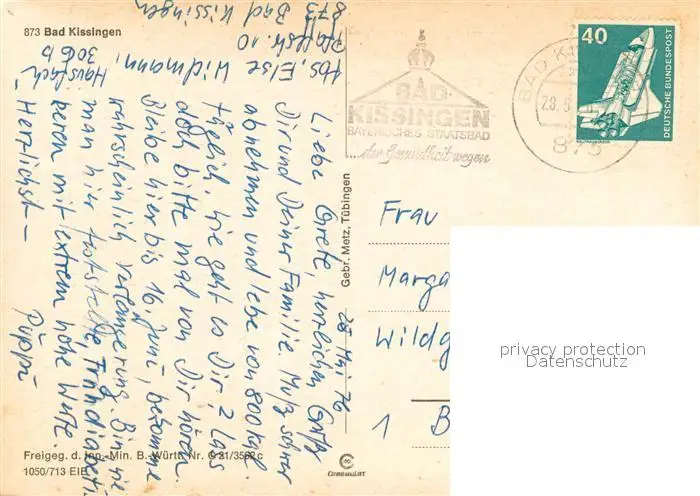 873 Bad Kissingen
Abs, Else Widmann,
10
873 Bad Kissingen
28. Mai '76
Liebe Grete, herzlichen Gruß
Dir und Deiner Familie. Muß schwer
abnehmen und lebe von 800 kal
täglich. Wie geht es Dir? Lass
doch bitte mal von Dir hören.
Bleibe hier bis 16. Juni, bekomme
wahrscheinlich Verlängerung. Bin wie
man hier feststellte,
mit extrem hohe Werte.
Herzlichst –
Püppi
BAD
KISSINGEN
BAYERISCHES STAATSBAD
...der Gesundheit wegen
BAD KI
28.5.
873
40
DEUTSCHE BUNDESPOST
Frau
Marga
Wildg
1 B
Gebr. Metz, Tübingen
privacy protection
Datenschutz
Freigeg. d. Inn.-Min. B.-Württ. Nr. G 21/3562 c
1050/713 EIE